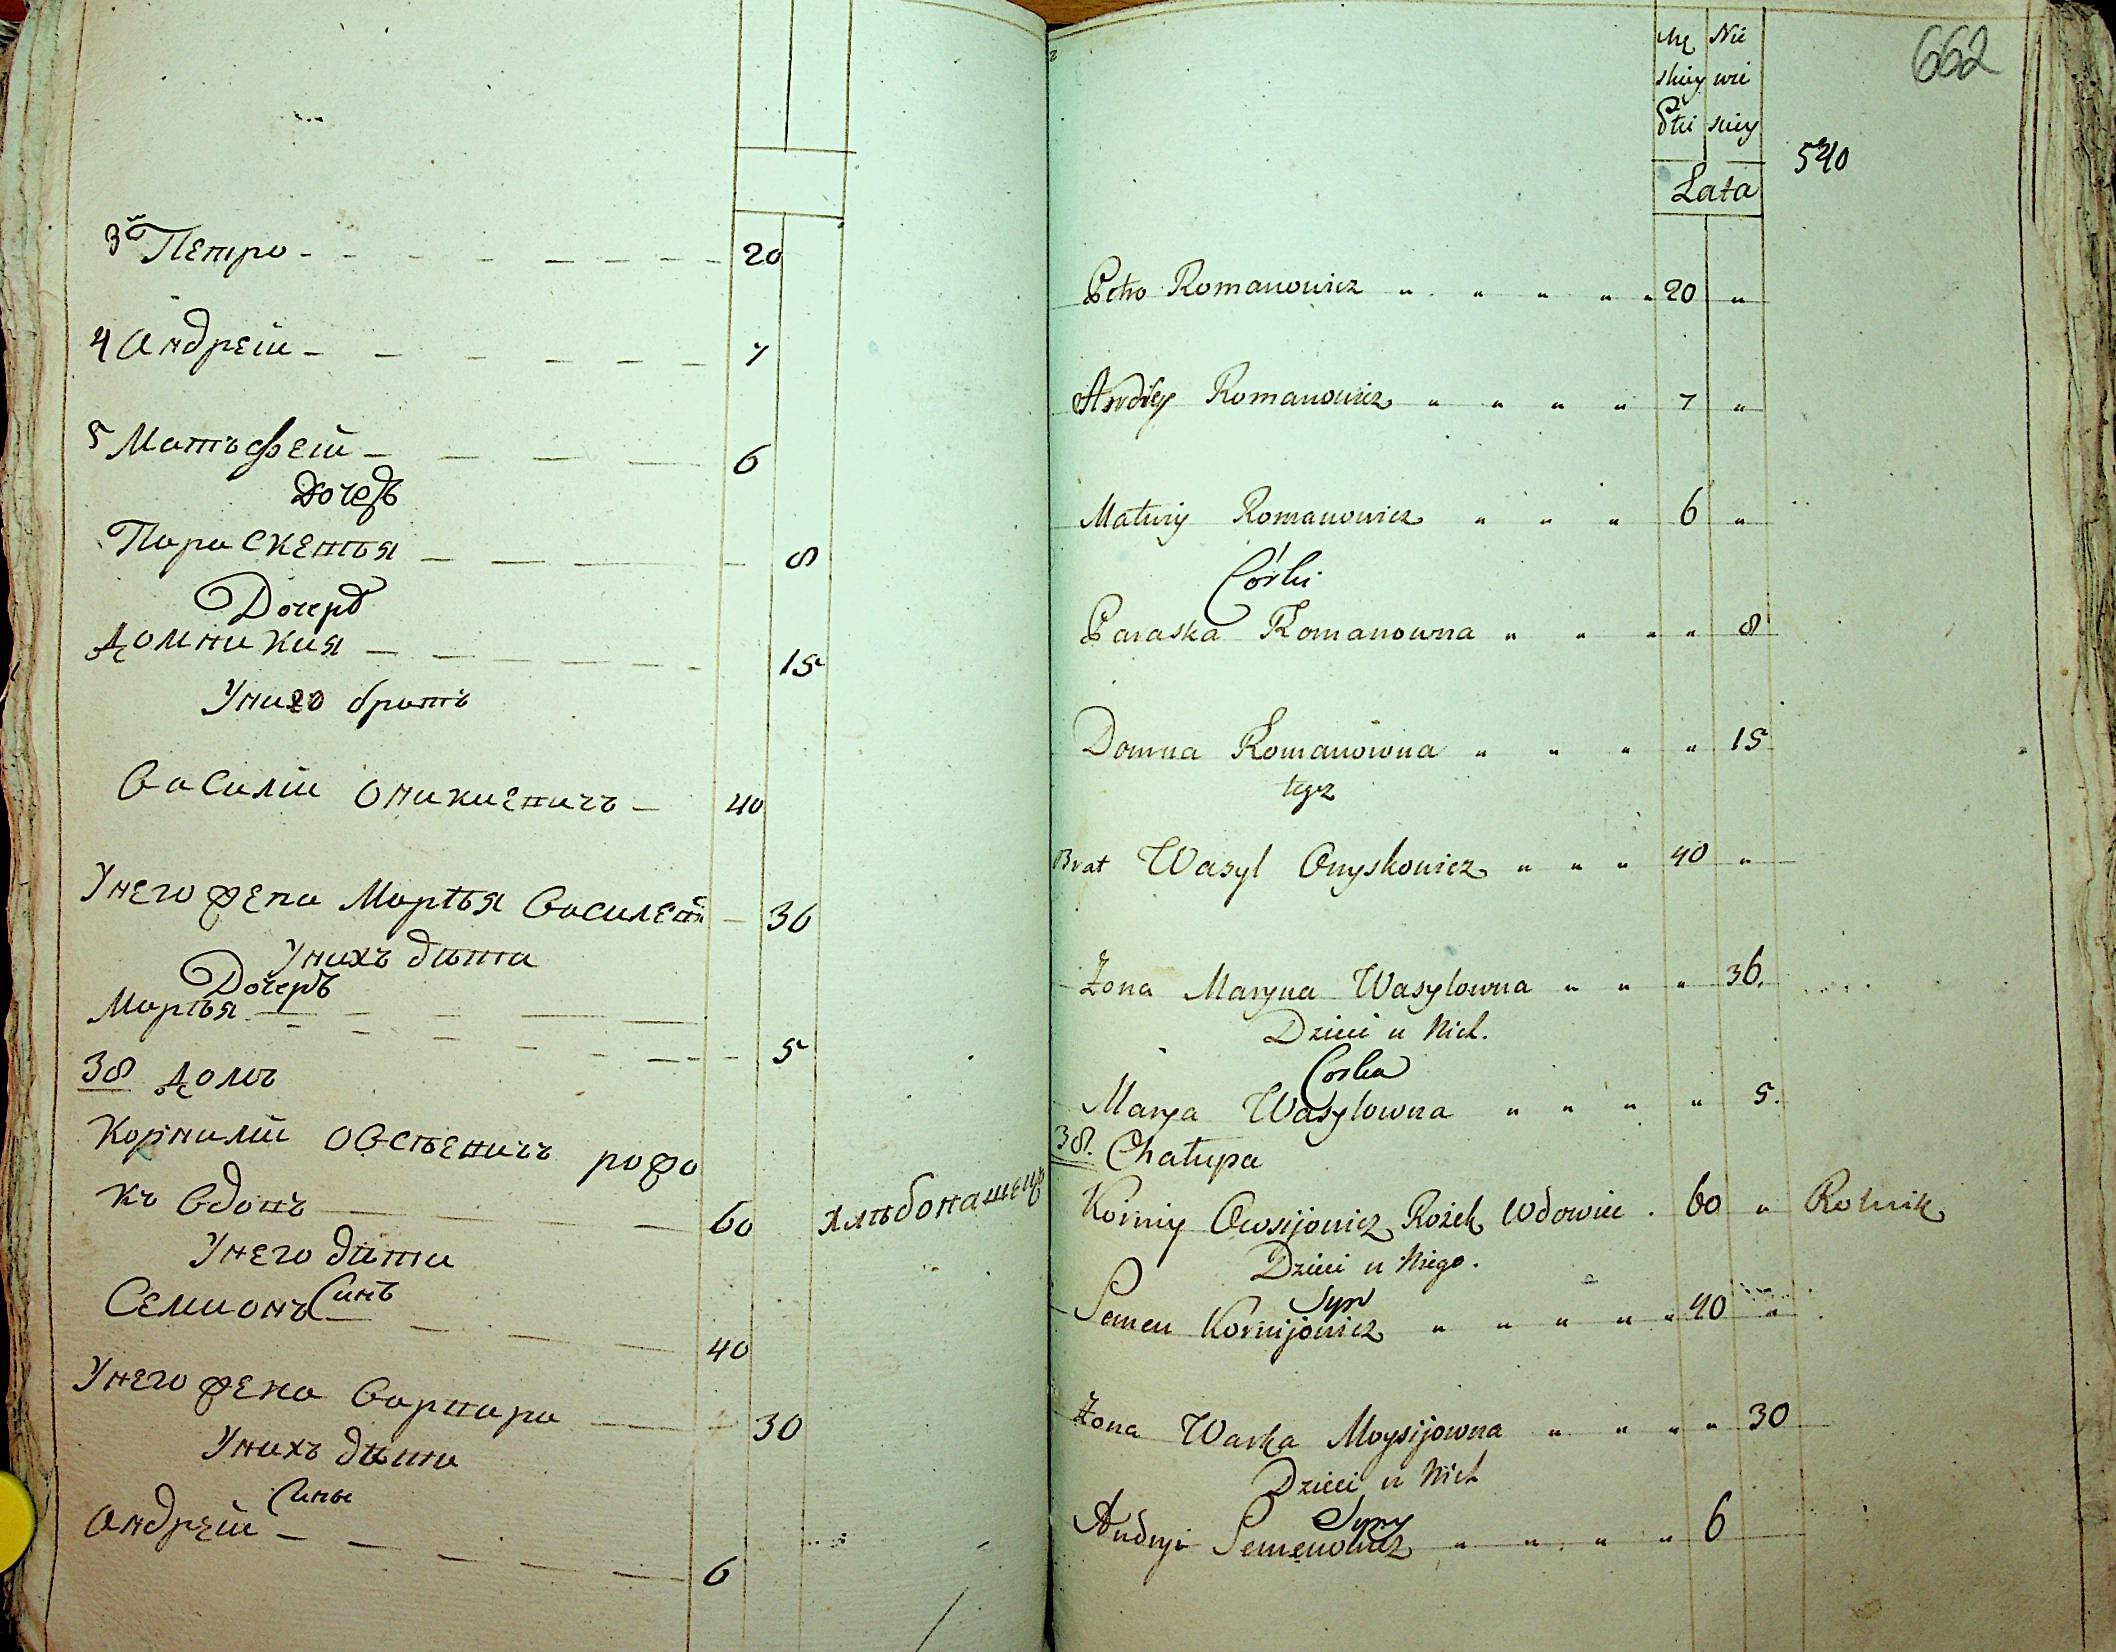 3й Петро 20
4 Андрей 7
5 Матъфей 6
Дочеръ
Параскевъя 8
Дочеръ
Домникия 15
У ниго братъ
Василій Оникиевичъ 40
У него жена Марѣя Василев 36
У нихъ дѣти
Дочеръ
Марѣя 5
38 домъ
Корнилій Овсѣевичъ рожо
къ вдовъ 60 хлѣбопашецъ
У него дѣти
Синъ
Семионъ 40
У него жена Варвара 30
У нихъ дѣти
Сины
Андрей 6
662
Mę Nie
skiey wie
Płci skiey
540
Lata
Petro Romanowicz " " " " " 20 "
Andrey Romanowicz " " " " 7 "
Matwiy Romanowicz " " " 6 "
Córki
Paraska Romanowna " " " " 8
Domna Romanowna " " " " 15
tegoż
Brat Wasyl Onyskowicz " " " 40 "
Żona Maryna Wasylowna " " " 36.
Dzieci u Nich.
Corka
Marya Wasylowna " " " " 5.
38. Chałupa
Korniy Owsijowicz Rożek Wdowiec . 60 " Rolnik
Dzieci u Niego.
Syn
Semen Kornijowicz " " " " " 40 "
Żona Warka Moysijowna " " " " 30
Dzieci u Nich
Syny
Andryi Semenowicz " " " " 6